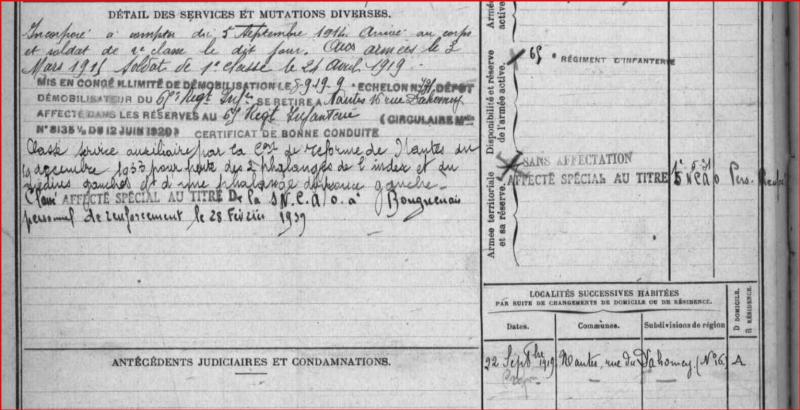 DÉTAIL DES SERVICES ET MUTATIONS DIVERSES.
Incorporé à compter du 5 Septembre 1914. Arrivé au corps
et soldat de 2e classe le dit jour. Aux armées le 3
Mars 1915 Soldat de 1e classe le 21 Avril 1919.
MIS EN CONGÉ ILLIMITÉ DE DÉMOBILISATION LE 9.19 9e ECHELON N° DÉPOT
DÉMOBILISATEUR DU 65e Regt Infie SE RETIRE A Nantes 16 rue Dahomey
AFFECTÉ DANS LES RÉSERVES AU 65 Regt Infanterie (CIRCULAIRE Mlle
N° 8135 1/8 DU 12 JUIN 1920) CERTIFICAT DE BONNE CONDUITE
Classé service auxiliaire par la Con de réforme de Nantes du
décembre 1933 pour perte des 2 phalanges de l'index et du
médius gauches et d'une phalange du gauche.
Classé AFFECTÉ SPÉCIAL AU TITRE De la S.N.C.A.O. à Bouguenais
personnel de renforcement le 28 Février 1939
ANTÉCÉDENTS JUDICIAIRES ET CONDAMNATIONS.
Armée
active.
Disponibilité et réserve
de l'armée active.
65e RÉGIMENT D'INFANTERIE
Armée territoriale
et sa réserve.
SANS AFFECTATION
AFFECTÉ SPÉCIAL AU TITRE
S N C A O
Pers.
LOCALITÉS SUCCESSIVES HABITÉES
PAR SUITE DE CHANGEMENTS DE DOMICILE OU DE RÉSIDENCE.
Dates. Communes. Subdivisions de région
D DOMICILE.
R RÉSIDENCE.
22 Septbre 1919 Nantes, rue du Dahomey (No 16) A